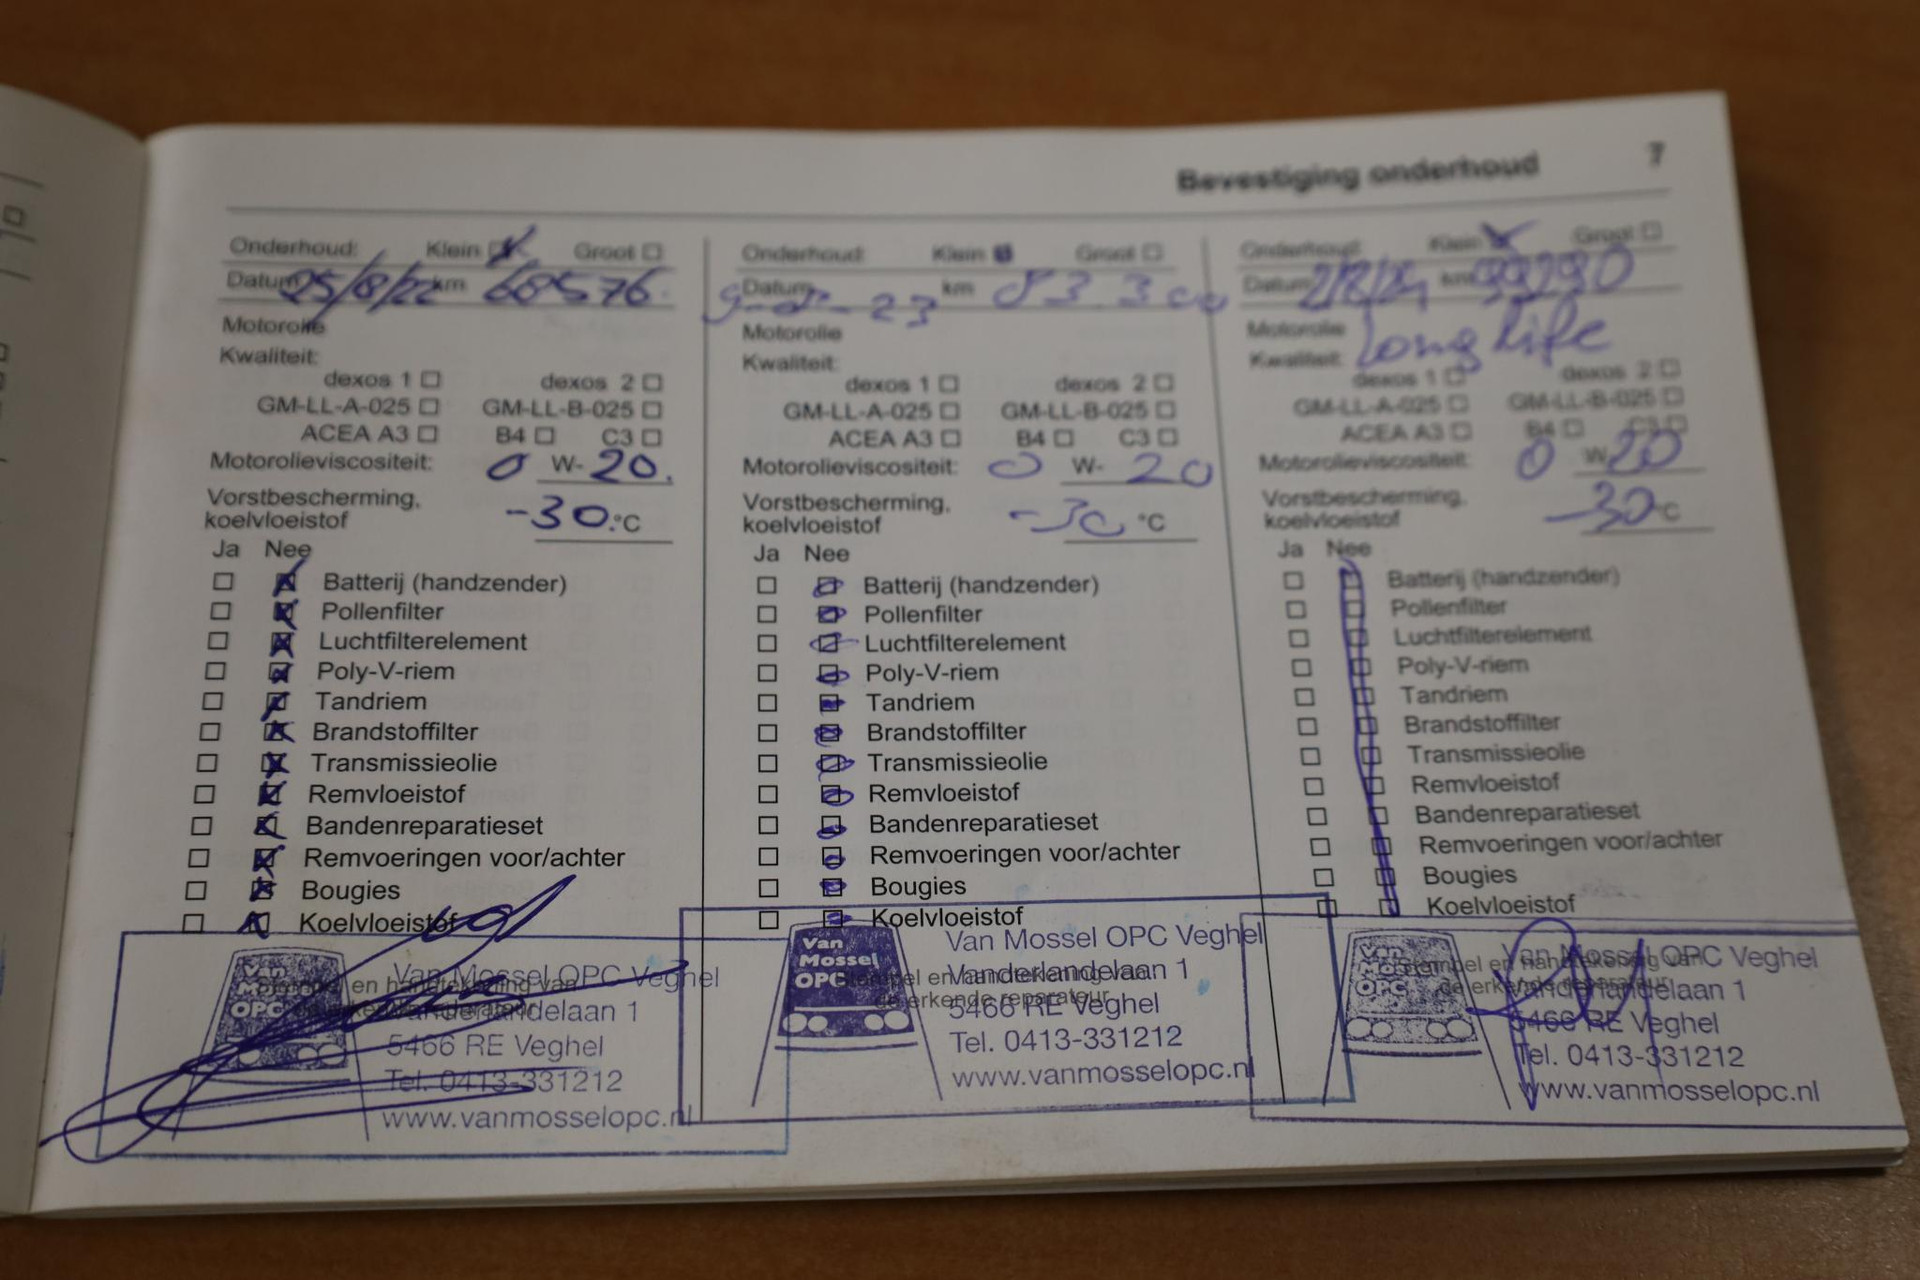 Bevestiging onderhoud 7
Onderhoud: Klein Groot
Datum 25/8/22 km 68576.
Motorolie
Kwaliteit:
dexos 1 dexos 2
GM-LL-A-025 GM-LL-B-025
ACEA A3 B4 C3
Motorolieviscositeit: 0 W- 20.
Vorstbescherming,
koelvloeistof -30 °C
Ja Nee
Batterij (handzender)
Pollenfilter
Luchtfilterelement
Poly-V-riem
Tandriem
Brandstoffilter
Transmissieolie
Remvloeistof
Bandenreparatieset
Remvoeringen voor/achter
Bougies
Koelvloeistof
Stempel en handtekening van
de erkende reparateur
Van Mossel OPC
Van Mossel OPC Veghel
Vanderlandelaan 1
5466 RE Veghel
Tel. 0413-331212
www.vanmosselopc.nl
Onderhoud: Klein Groot
Datum 9-8-23 km 83300
Motorolie
Kwaliteit:
dexos 1 dexos 2
GM-LL-A-025 GM-LL-B-025
ACEA A3 B4 C3
Motorolieviscositeit: 0 W- 20
Vorstbescherming,
koelvloeistof -30 °C
Ja Nee
Batterij (handzender)
Pollenfilter
Luchtfilterelement
Poly-V-riem
Tandriem
Brandstoffilter
Transmissieolie
Remvloeistof
Bandenreparatieset
Remvoeringen voor/achter
Bougies
Koelvloeistof
Stempel en handtekening van
de erkende reparateur
Van
Mossel
OPC
Van Mossel OPC Veghel
Vanderlandelaan 1
5466 RE Veghel
Tel. 0413-331212
www.vanmosselopc.nl
Onderhoud: Klein Groot
Datum km 99290
Motorolie Long Life
Kwaliteit:
dexos 1 dexos 2
GM-LL-A-025 GM-LL-B-025
ACEA A3 B4 C3
Motorolieviscositeit: 0 W 20
Vorstbescherming,
koelvloeistof -30 °C
Ja Nee
Batterij (handzender)
Pollenfilter
Luchtfilterelement
Poly-V-riem
Tandriem
Brandstoffilter
Transmissieolie
Remvloeistof
Bandenreparatieset
Remvoeringen voor/achter
Bougies
Koelvloeistof
Stempel en handtekening van
de erkende reparateur
Van Mossel OPC
Van Mossel OPC Veghel
Vanderlandelaan 1
5466 RE Veghel
Tel. 0413-331212
www.vanmosselopc.nl